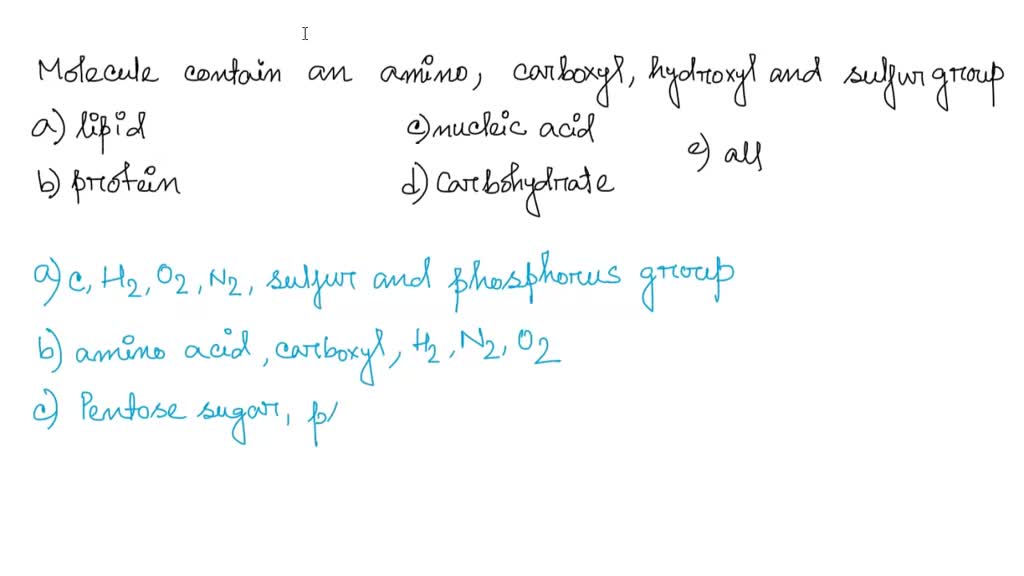 Molecule contain an amino, carboxyl, hydroxyl and sulfur group
a) lipid c) nucleic acid e) all
b) protein d) carbohydrate
a) C, H2, O2, N2, sulfur and phosphorus group
b) amino acid, carboxyl, H2, N2, O2
c) Pentose sugar, p